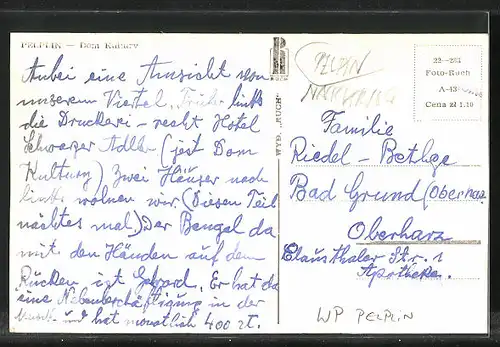 PELPLIN — Dom Kultury
Anbei eine Ansicht von
unserem Viertel, Früher links
die Druckerei - recht Hotel
Schwarzer Adler (jest Dom
Kultury) Zwei Häuser nach
links wohnen wir (Diesen Teil
nächstes mal) Der Bengel da
mit den Händen auf dem
Rücken ist Gerard. Er hat da
eine Nebenbeschäftigung in der
und hat monatlich 400 zł.
WYD. „RUCH”
PELPLIN
22-283
Foto-Ruch
A-43
Cena zł 1.10
Familie
Riedel - Bethge
Bad Grund (Oberharz
Oberharz
Clausthaler Str. 1
Apotheke.
WP PELPLIN